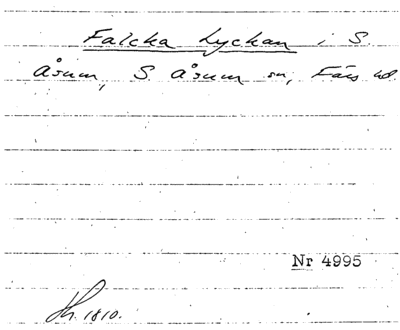 Falcka Lyckan i S.
Åsum, S. Åsum sn, Färs hd.
Nr 4995
1810.